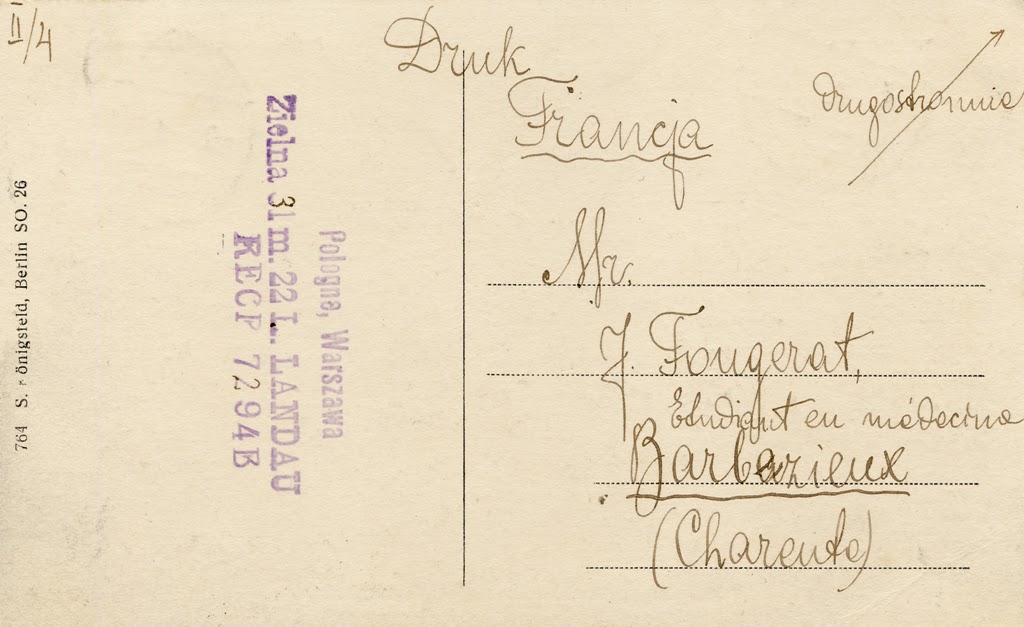 II/4
Druk
Francja
drugostronnie
Mr.
J. Fougerat,
Etudiant en médecine
Barbezieux
(Charente)
Pologne, Warszawa
Zielna 31 m. 22 L. LANDAU
RECP 7294B
764 S. önigsfeld, Berlin SO. 26